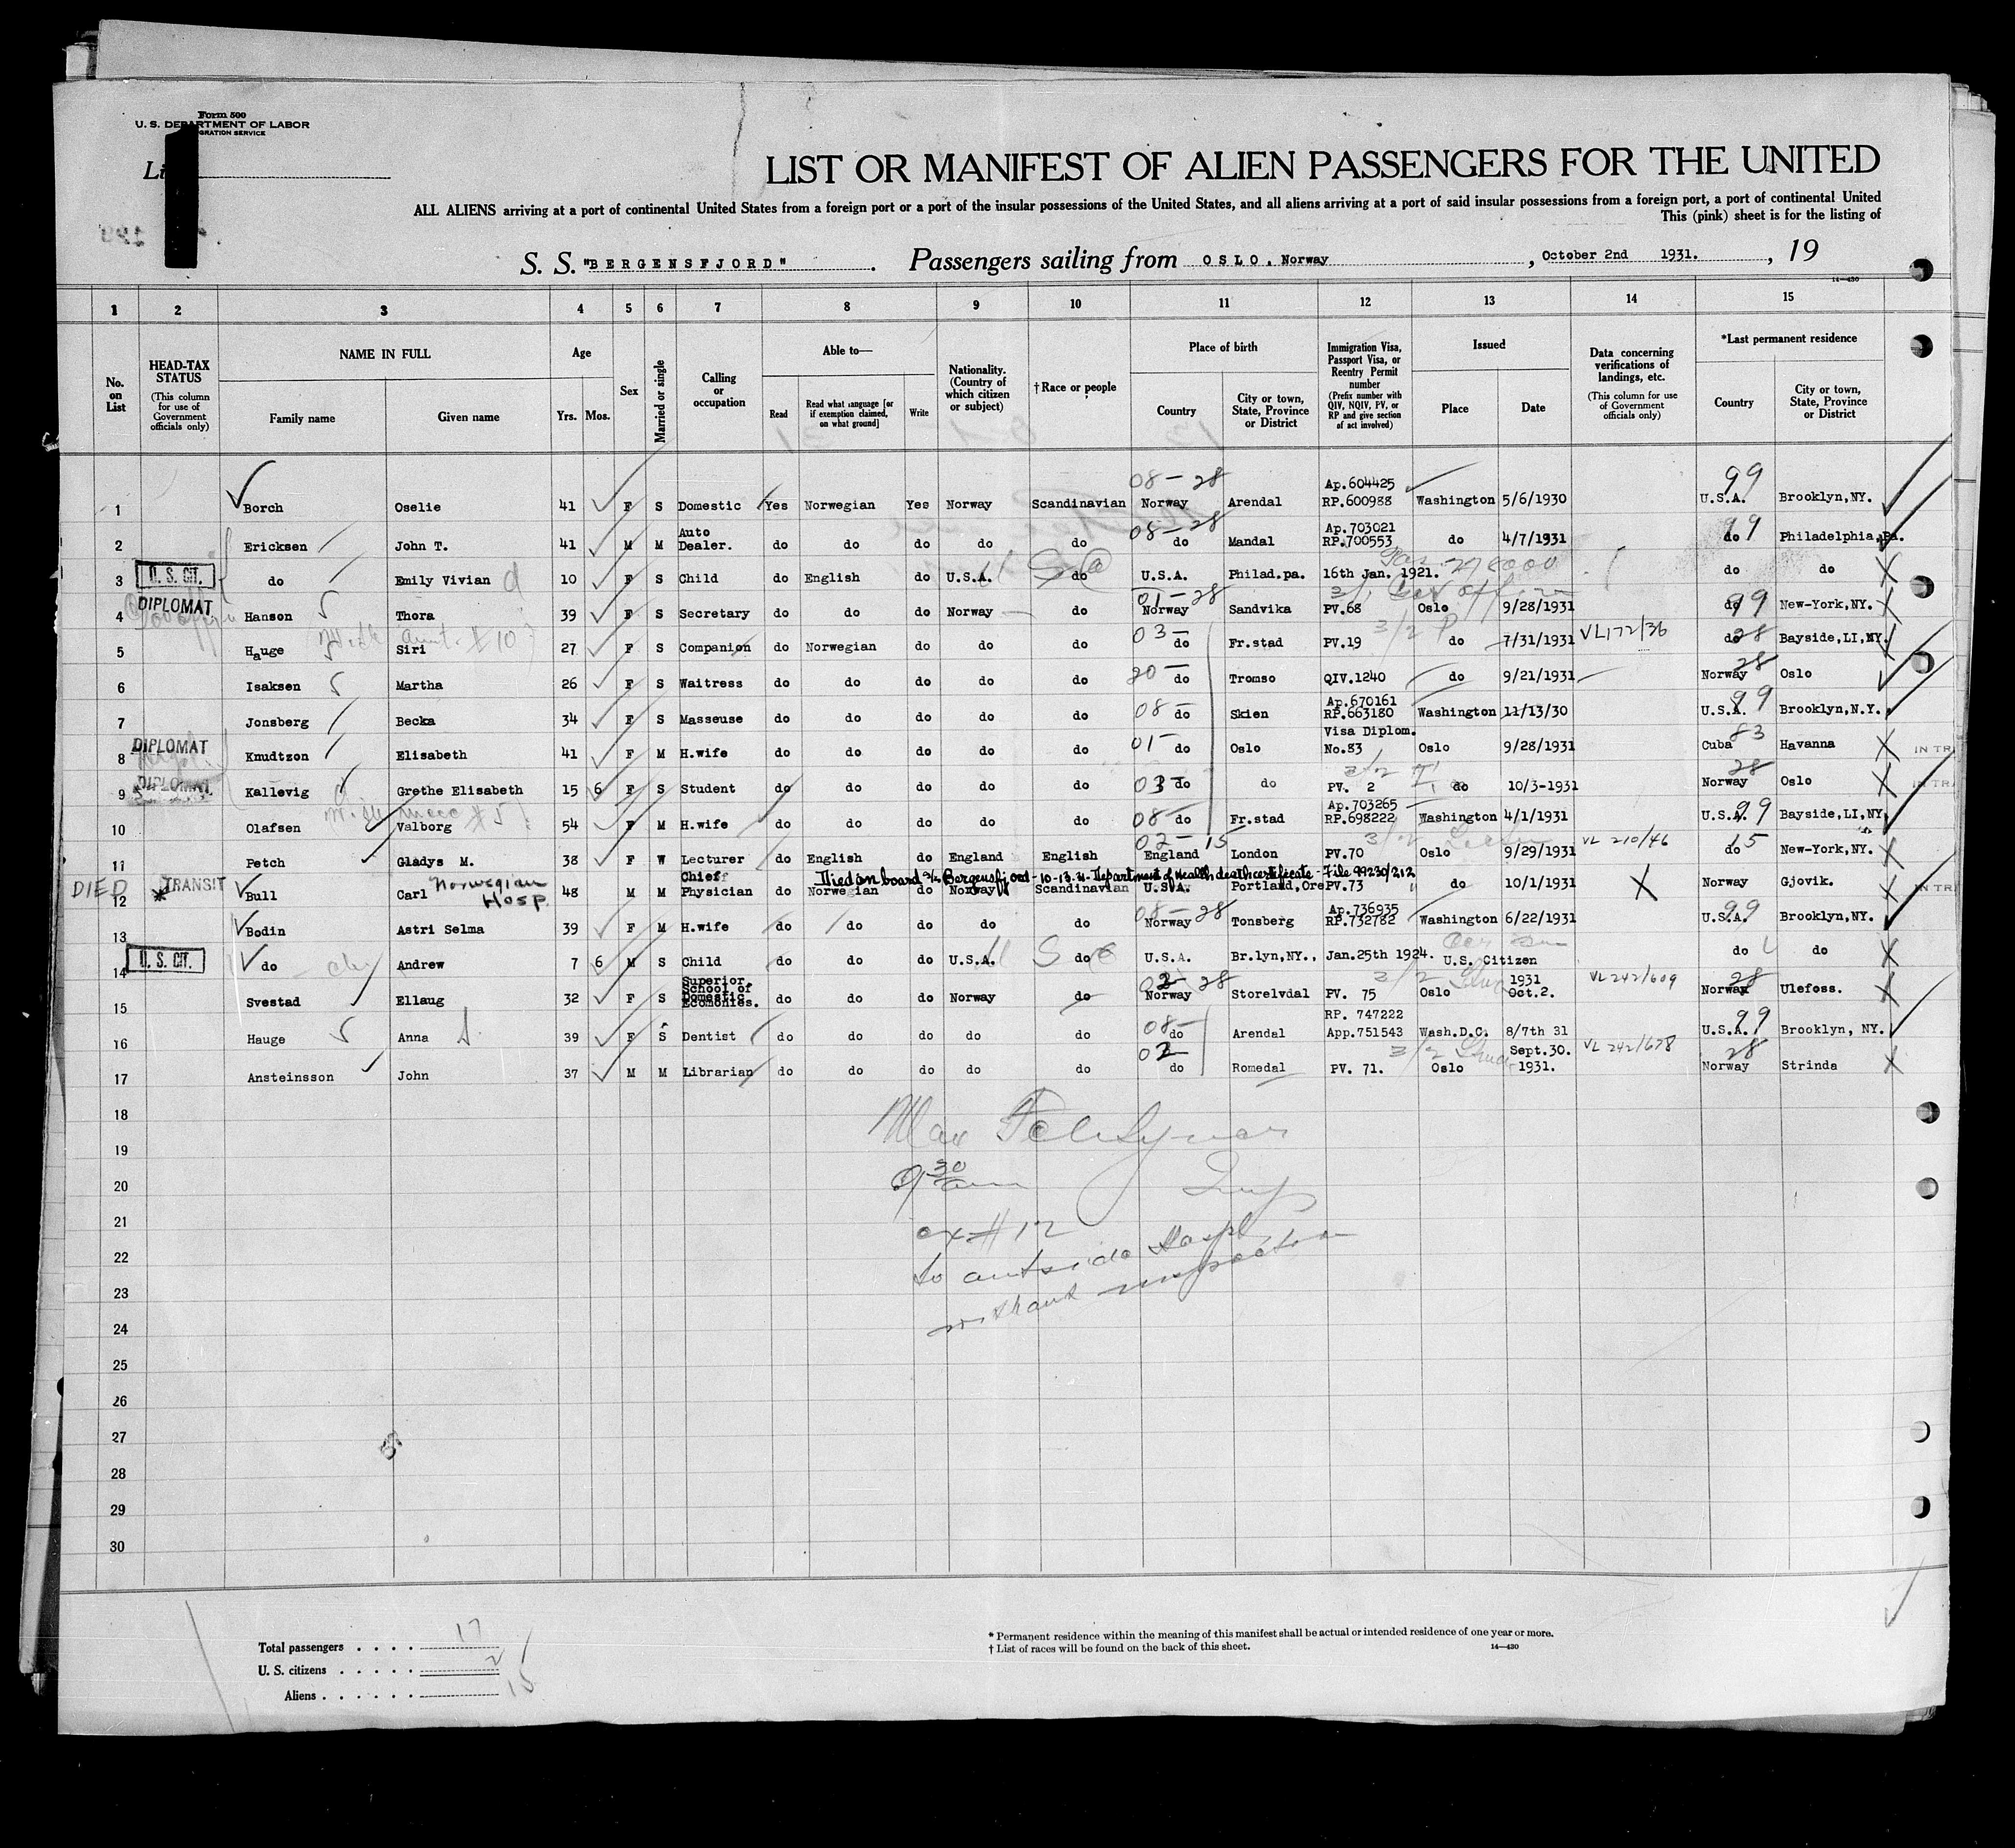 Form 500
U. S. DEPARTMENT OF LABOR
GRATION SERVICE
Li
LIST OR MANIFEST OF ALIEN PASSENGERS FOR THE UNITED
ALL ALIENS arriving at a port of continental United States from a foreign port or a port of the insular possessions of the United States, and all aliens arriving at a port of said insular possessions from a foreign port, a port of continental United
This (pink) sheet is for the listing of
S. S. "BERGENSFJORD". Passengers sailing from OSLO, Norway, October 2nd 1931., 19
14—430
1 2 3 4 5 6 7 8 9 10 11 12 13 14 15
No. on List
HEAD-TAX STATUS (This column for use of Government officials only)
NAME IN FULL Family name Given name
Age Yrs. Mos.
Sex
Married or single
Calling or occupation
Able to— Read Read what language [or if exemption claimed, on what ground] Write
Nationality. (Country of which citizen or subject)
†Race or people
Place of birth Country City or town, State, Province or District
Immigration Visa, Passport Visa, or Reentry Permit number (Prefix number with QIV, NQIV, PV, or RP and give section of act involved)
Issued Place Date
Data concerning verifications of landings, etc. (This column for use of Government officials only)
*Last permanent residence Country City or town, State, Province or District
08-28 Ap.604425 99
1 Borch Oselie 41 F S Domestic Yes Norwegian Yes Norway Scandinavian Norway Arendal RP.600988 Washington 5/6/1930 U.S.A. Brooklyn,NY.
08-28 Ap.703021 99
2 Ericksen John T. 41 M M Auto Dealer. do do do do do do Mandal RP.700553 do 4/7/1931 do Philadelphia,Pa.
3 U. S. CIT. do Emily Vivian 10 F S Child do English do U.S.A. do U.S.A. Philad.pa. 16th Jan. 1921. do do
01-28 99
4 DIPLOMAT Hanson Thora 39 F S Secretary do do do Norway do Norway Sandvika PV.68 Oslo 9/28/1931 do New-York,NY.
with aunt #10
03- 3/2 28
5 Hauge Siri 27 F S Companion do Norwegian do do do do Fr.stad PV.19 do 7/31/1931 VL172/36 do Bayside,LI,NY.
20- 28
6 Isaksen Martha 26 F S Waitress do do do do do do Tromso QIV.1240 do 9/21/1931 Norway Oslo
08- Ap.670161 99
7 Jonsberg Becka 34 F S Masseuse do do do do do do Skien RP.663180 Washington 11/13/30 U.S.A. Brooklyn,N.Y.
01- Visa Diplom. 83
8 DIPLOMAT Knudtzon Elisabeth 41 F M H.wife do do do do do do Oslo No.83 Oslo 9/28/1931 Cuba Havanna IN TR
03- 3/2 28
9 DIPLOMAT Kallevig Grethe Elisabeth 15 6 F S Student do do do do do do do PV. 2 do 10/3-1931 Norway Oslo IN TRA
with niece #5
08- Ap.703265 99
10 Olafsen Valborg 54 F M H.wife do do do do do do Fr.stad RP.698222 Washington 4/1/1931 U.S.A. Bayside,LI,NY.
02-15 15
11 Petch Gladys M. 38 F W Lecturer do English do England English England London PV.70 Oslo 9/29/1931 VL 210/46 do New-York,NY.
Died on board S/S. Bergensfjord - 10-13-31 - Department of Health death certificate - File 99230/212
DIED 12 * TRANSIT Bull Carl Norwegian Hosp. 48 M M Chief Physician do Norwegian do Norway Scandinavian U.S.A. Portland,Ore PV.73 do 10/1/1931 X Norway Gjovik. IN TR
08-28 Ap.736935 99
13 Bodin Astri Selma 39 F M H.wife do do do do do Norway Tonsberg RP.732782 Washington 6/22/1931 U.S.A. Brooklyn,NY.
14 U. S. CIT. do Andrew 7 6 M S Child do do do U.S.A. do U.S.A. Br.lyn,NY., Jan.25th 1924. U.S. Citizen do do
02-28 3/2 28
15 Svestad Ellaug 32 F S Superior. School of Domestic Economies. do do do Norway do Norway Storelvdal PV. 75 Oslo 1931 Oct.2. VL 242/609 Norway Ulefoss.
08- RP. 747222 99
16 Hauge Anna 39 F S Dentist do do do do do do Arendal App.751543 Wash.D.C. 8/7th 31 U.S.A. Brooklyn, NY.
02 3/2 28
17 Ansteinsson John 37 M M Librarian do do do do do do Romedal PV. 71. Oslo Sept.30. 1931. VL 242/678 Norway Strinda
18
19
20
21
22
23
24
25
26
27
28
29
30
Max
9 30 am Insp
ex #12
to outside Hospl
without inspection
Total passengers . . . . 17
U. S. citizens . . . . . 2
Aliens . . . . . . 15
* Permanent residence within the meaning of this manifest shall be actual or intended residence of one year or more.
† List of races will be found on the back of this sheet.
14—430